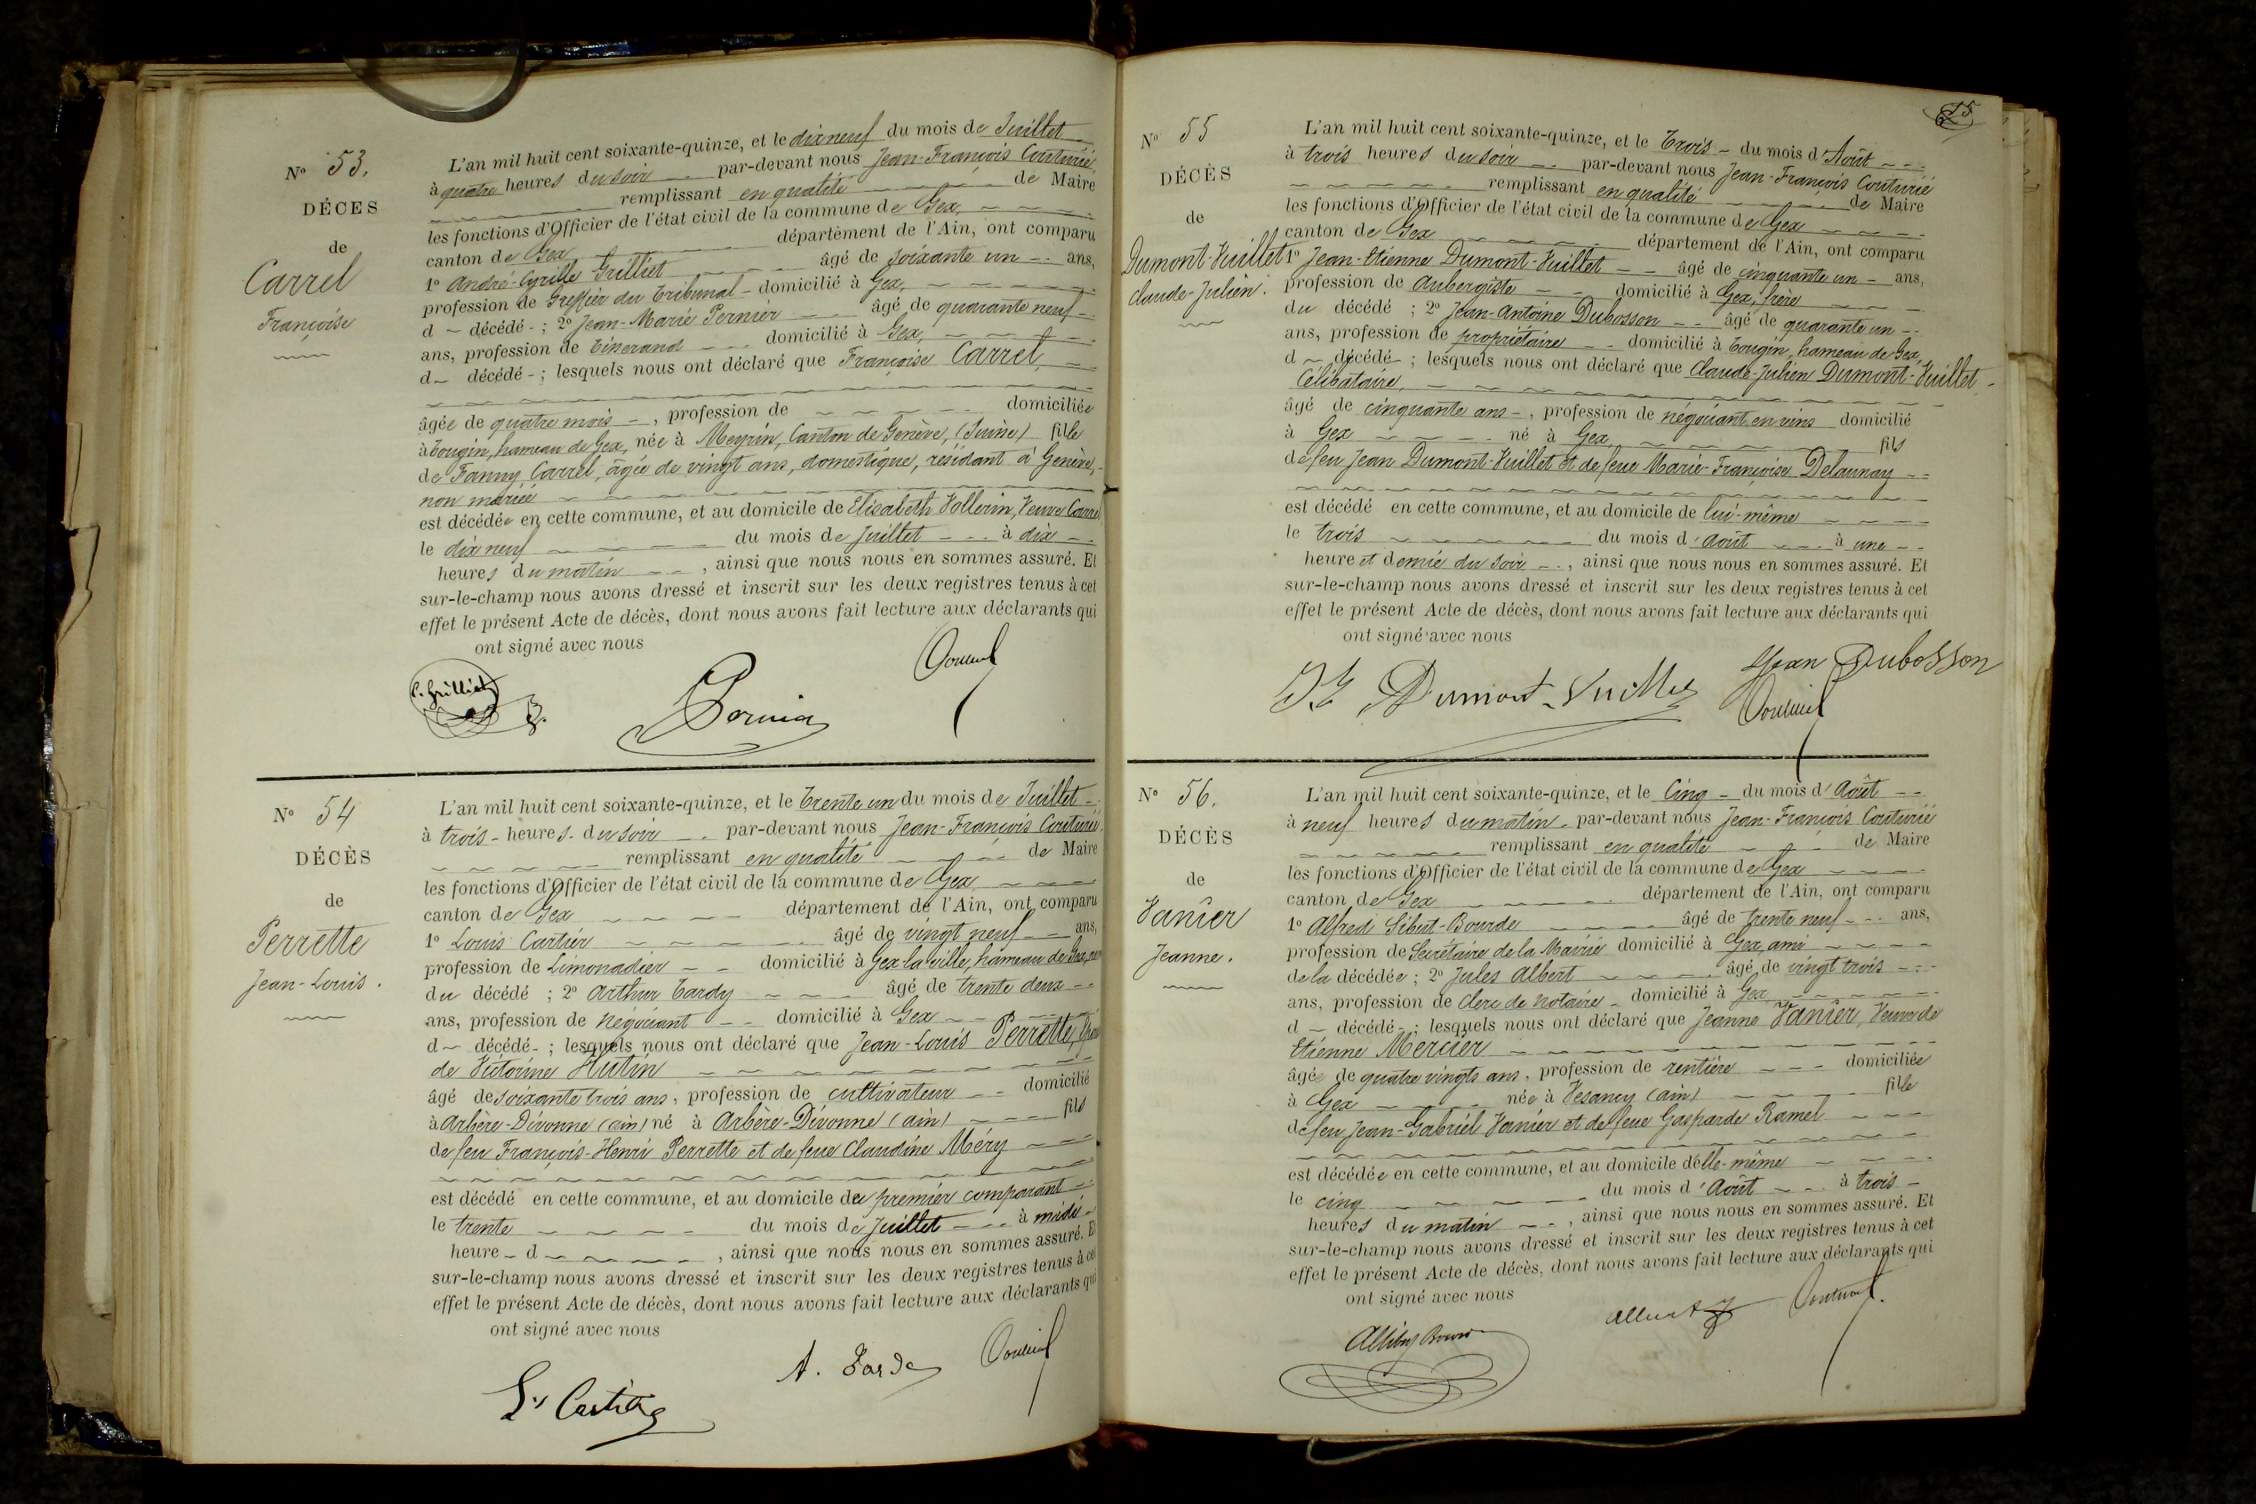 N° 53.
DÉCES
de
Carrel
Françoise
L'an mil huit cent soixante-quinze, et le dix neuf du mois de Juillet
à quatre heures du soir par-devant nous Jean-François Couturié
remplissant en qualité de Maire
les fonctions d'Officier de l'état civil de la commune de Gex,
canton de Gex département de l'Ain, ont comparu
1° André-Cyrille Grilliet âgé de soixante un ans,
profession de Greffier du Tribunal domicilié à Gex,
d décédé ; 2° Jean-Marie Pernier âgé de quarante neuf
ans, profession de domicilié à Gex,
d décédé ; lesquels nous ont déclaré que Françoise Carrel,
âgée de quatre mois, profession de domiciliée
à Tougin, hameau de Gex, née à Meyrin, Canton de Genève, (Suisse) fille
de Fanny Carrel, âgée de vingt ans, domestique, résidant à Genève,
non mariée
est décédée en cette commune, et au domicile de Elisabeth Vollerin, Veuve Carrel
le dix neuf du mois de Juillet à dix
heures du matin, ainsi que nous nous en sommes assuré. Et
sur-le-champ nous avons dressé et inscrit sur les deux registres tenus à cet
effet le présent Acte de décès, dont nous avons fait lecture aux déclarants qui
ont signé avec nous
C. Grilliet
Pernier
Couturié
N° 54
DÉCÈS
de
Perrette
Jean-Louis.
L'an mil huit cent soixante-quinze, et le Trente un du mois de Juillet
à trois heures du soir par-devant nous Jean-François Couturié
remplissant en qualité de Maire
les fonctions d'Officier de l'état civil de la commune de Gex
canton de Gex département de l'Ain, ont comparu
1° Louis Cartier âgé de vingt neuf ans,
profession de Limonadier domicilié à Gex la ville, hameau de Gex,
du décédé ; 2° Arthur Tardy âgé de trente deux
ans, profession de Négociant domicilié à Gex
d décédé ; lesquels nous ont déclaré que Jean-Louis Perrette, Epoux
de Victorine Hutin
âgé de soixante trois ans, profession de cultivateur domicilié
à Arbère-Divonne (ain) né à Arbère-Divonne (ain) fils
de feu François-Henri Perrette et de feue Claudine Méry
est décédé en cette commune, et au domicile du premier comparant
le trente du mois de Juillet à midi
heure d , ainsi que nous nous en sommes assuré. Et
sur-le-champ nous avons dressé et inscrit sur les deux registres tenus à cet
effet le présent Acte de décès, dont nous avons fait lecture aux déclarants qui
ont signé avec nous
Ls Cartier
A. Tardy
Couturié
N° 55
DÉCÈS
de
Dumont-Vuillet
Claude-Julien.
L'an mil huit cent soixante-quinze, et le Trois du mois d'Août
à trois heures du soir par-devant nous Jean-François Couturié
remplissant en qualité de Maire
les fonctions d'Officier de l'état civil de la commune de Gex
canton de Gex département de l'Ain, ont comparu
1° Jean-Etienne Dumont-Vuillet âgé de cinquante un ans,
profession de Aubergiste domicilié à Gex, frère
du décédé ; 2° Jean-Antoine Dubosson âgé de quarante un
ans, profession de propriétaire domicilié à Tougin, hameau de Gex,
d décédé ; lesquels nous ont déclaré que Claude-Julien Dumont-Vuillet
Célibataire,
âgé de cinquante ans, profession de négociant en vins domicilié
à Gex né à Gex fils
de feu Jean Dumont-Vuillet et de feue Marie-Françoise Delaunay
est décédé en cette commune, et au domicile de lui-même
le trois du mois d'août à une
heure et demie du soir, ainsi que nous nous en sommes assuré. Et
sur-le-champ nous avons dressé et inscrit sur les deux registres tenus à cet
effet le présent Acte de décès, dont nous avons fait lecture aux déclarants qui
ont signé avec nous
J. E Dumont-Vuillet
Jean Dubosson
Couturié
N° 56.
DÉCÈS
de
Vanier
Jeanne.
L'an mil huit cent soixante-quinze, et le Cinq du mois d'Août
à neuf heures du matin par-devant nous Jean-François Couturié
remplissant en qualité de Maire
les fonctions d'Officier de l'état civil de la commune de Gex
canton de Gex département de l'Ain, ont comparu
1° Alfred Sibut-Bourde âgé de trente neuf ans,
profession de Secrétaire de la Mairie domicilié à Gex ami
de la décédée ; 2° Jules Albert âgé de vingt trois
ans, profession de clerc de notaire domicilié à Gex
d décédé ; lesquels nous ont déclaré que Jeanne Vanier, Veuve de
Etienne Mercier
âgée de quatre vingts ans, profession de rentière domiciliée
à Gex née à Vesancy (ain) fille
de feu Jean-Gabriel Vanier et de feue Gasparde Ramel
est décédée en cette commune, et au domicile d'elle-même
le cinq du mois d'Août à trois
heures du matin, ainsi que nous nous en sommes assuré. Et
sur-le-champ nous avons dressé et inscrit sur les deux registres tenus à cet
effet le présent Acte de décès, dont nous avons fait lecture aux déclarants qui
ont signé avec nous
Albert
Couturié